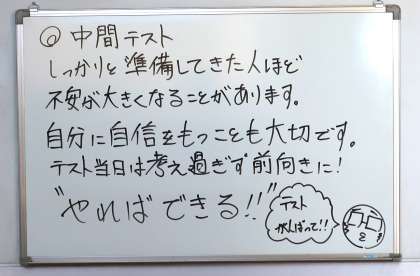 ◎ 中間テスト
しっかりと準備してきた人ほど
不安が大きくなることがあります。
自分に自信をもつことも大切です。
テスト当日は考え過ぎず前向きに!
"やればできる!!"
テスト
がんばって!!